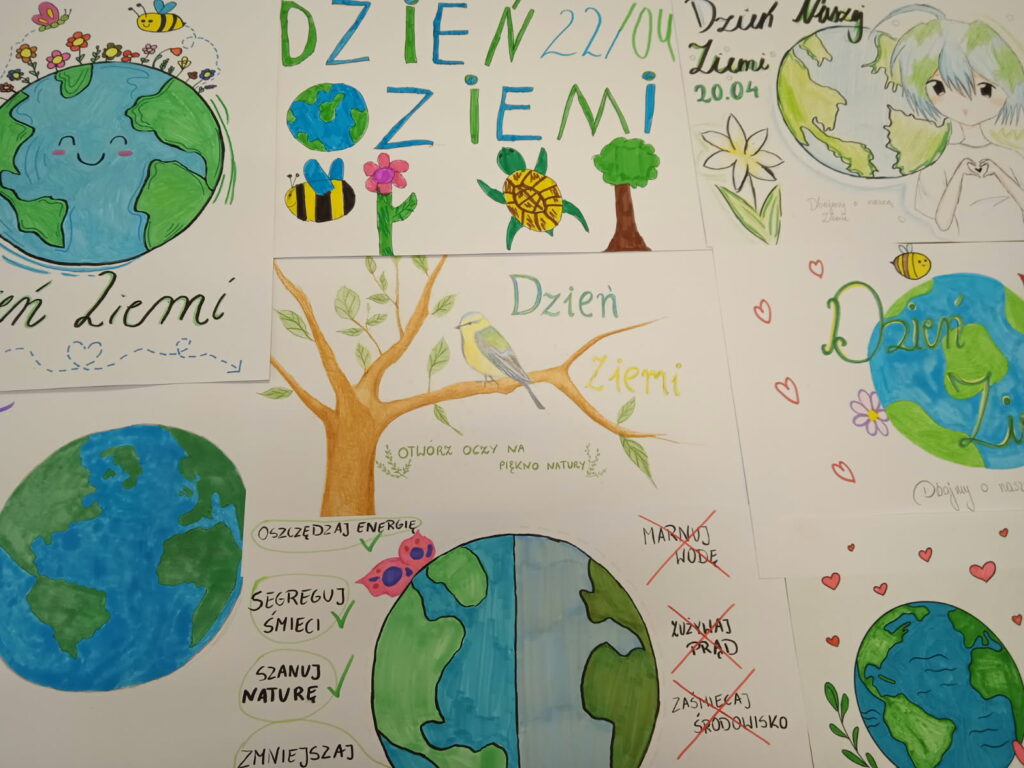 DZIEŃ 22/04
ZIEMI
Dzień Naszej
Ziemi
20.04
Dbajmy o naszą
Ziemię
eń Ziemi
Dzień
Ziemi
OTWÓRZ OCZY NA
PIĘKNO NATURY
Dzień
Zi
Dbajmy o nasz
OSZCZĘDZAJ ENERGIĘ
SEGREGUJ
ŚMIECI
SZANUJ
NATURĘ
ZMNIEJSZAJ
MARNUJ
WODĘ
ZUŻYWAJ
PRĄD
ZAŚMIECAJ
ŚRODOWISKO